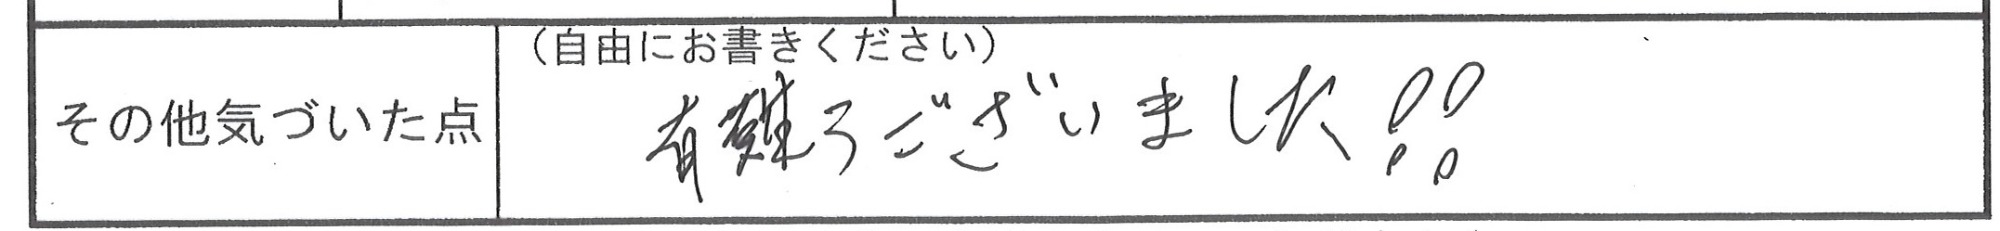 (自由にお書きください)
その他気づいた点
有難うございました!!